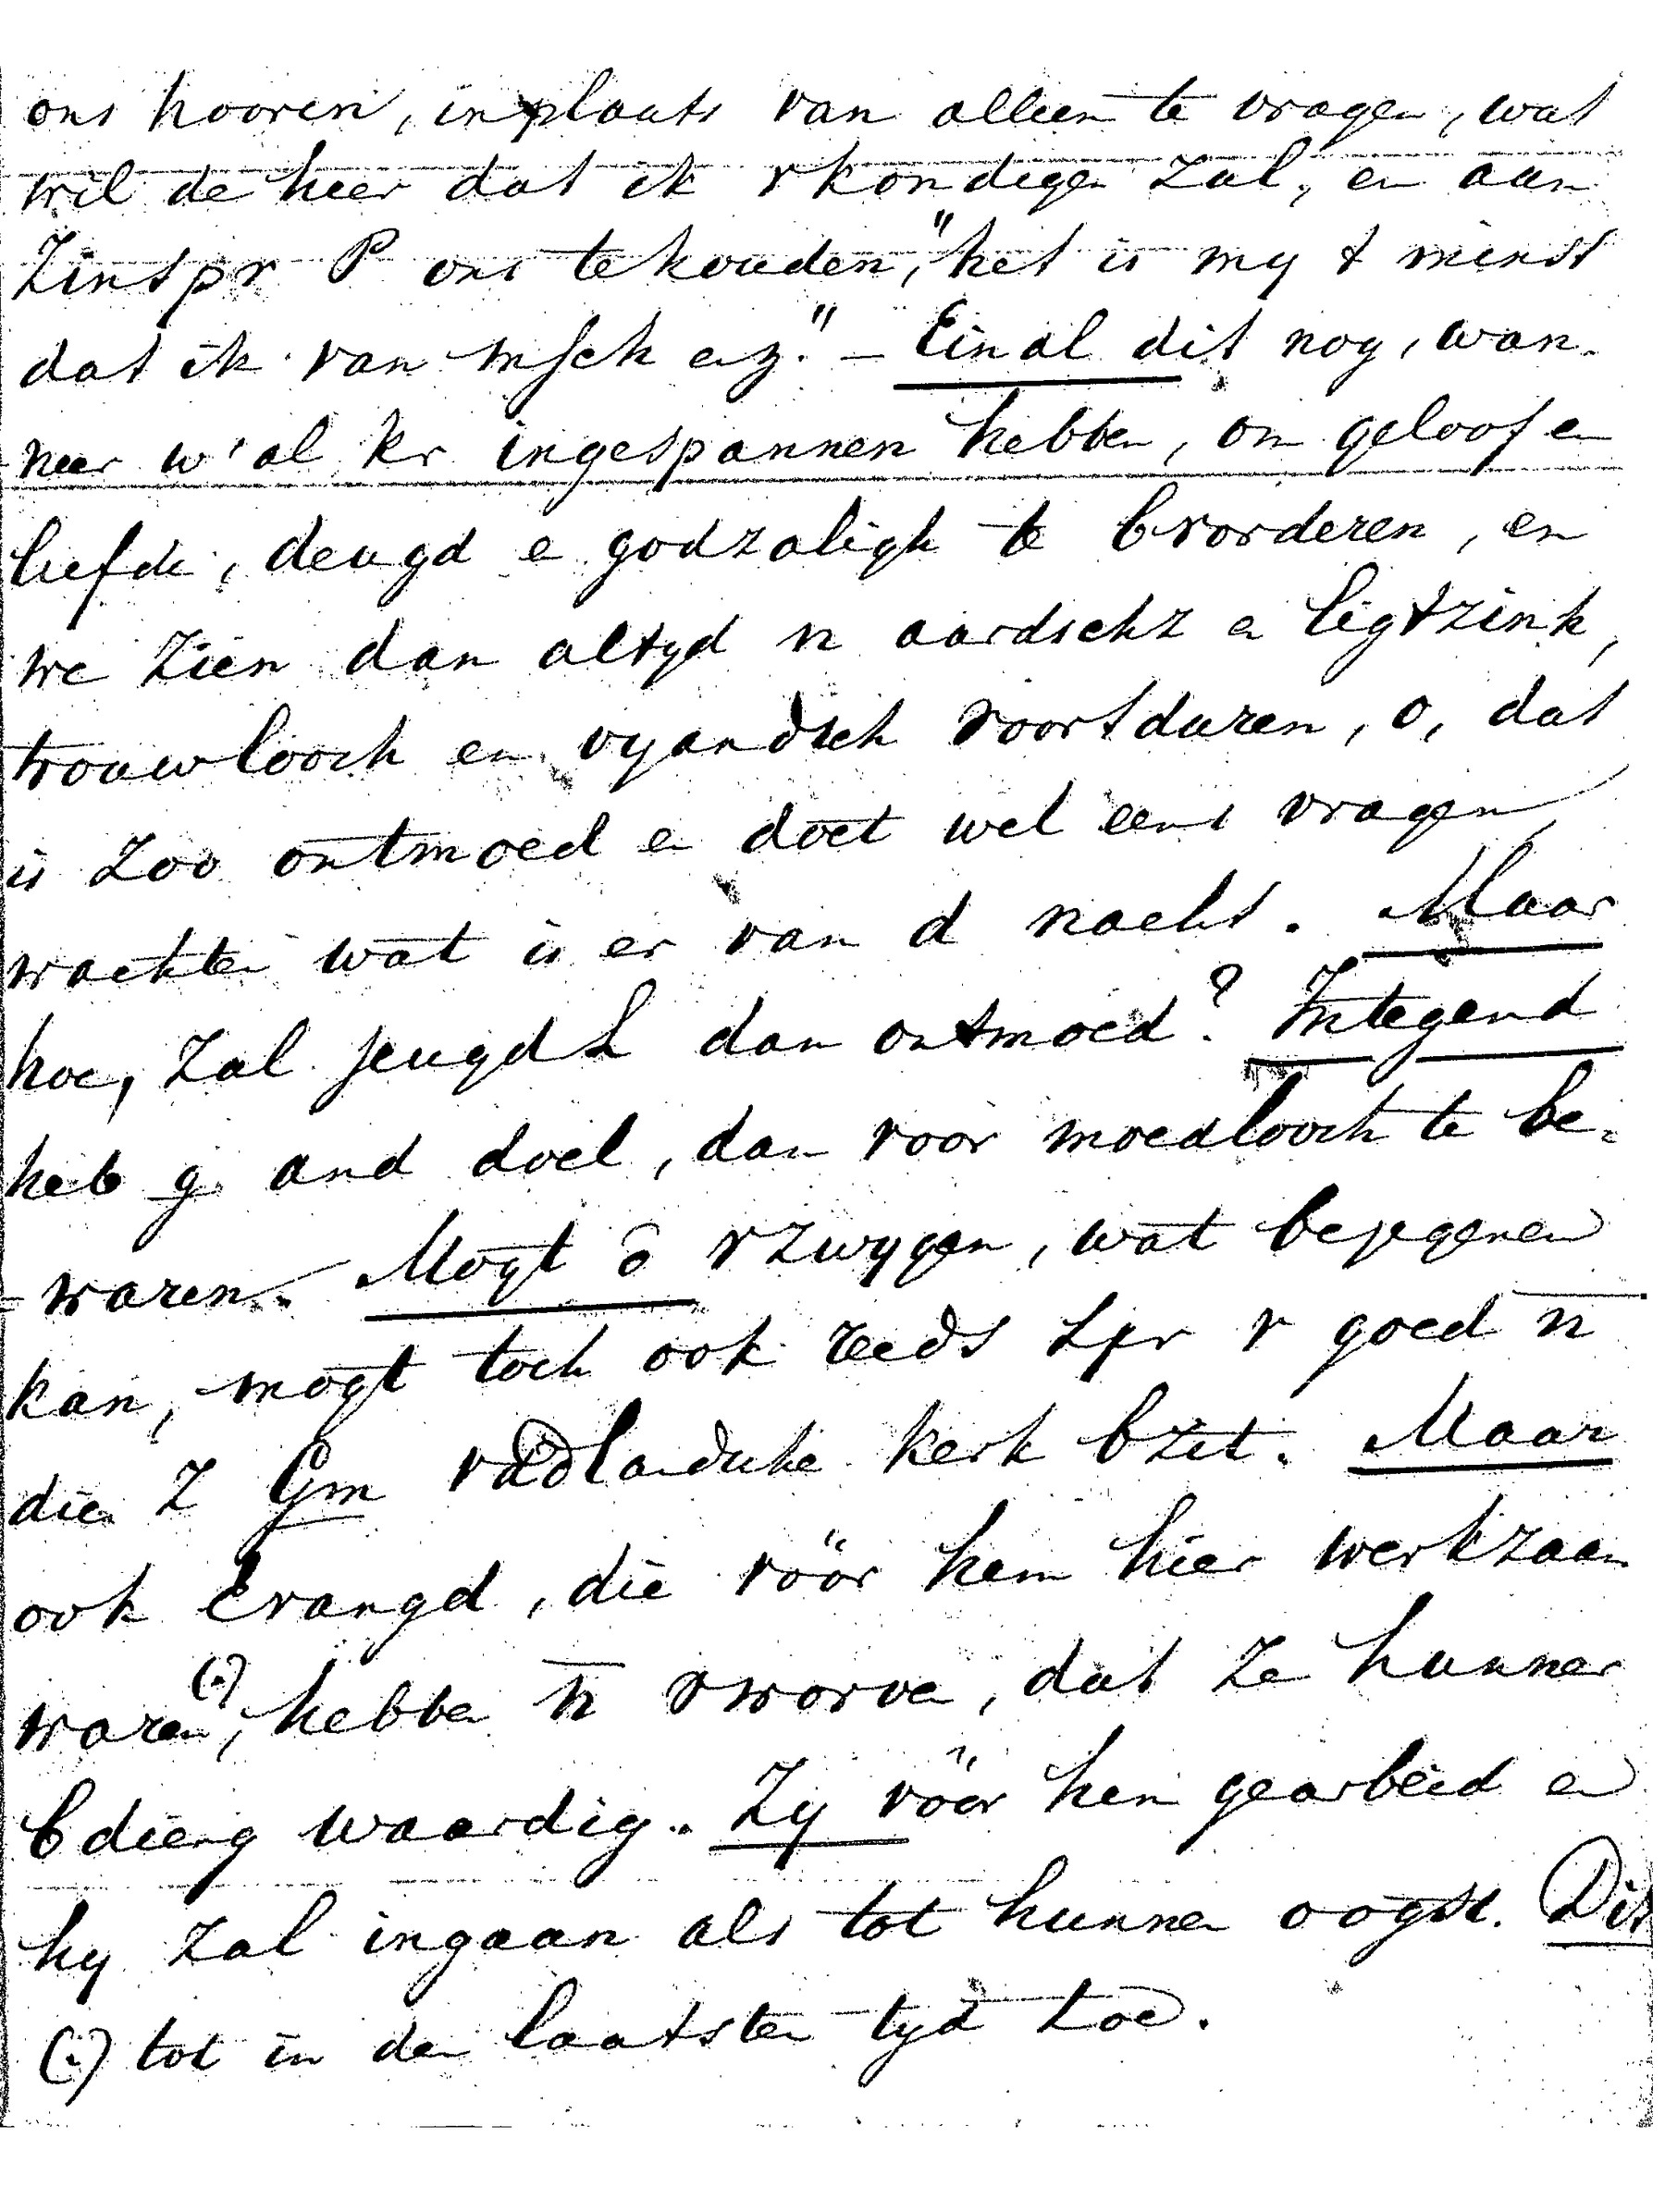 ons hooren, in plaats van alleen te vragen, wat
wil de heer dat ik vkondigen zal, en aan
Zinspr P ons te houden, "het is my t minst
dat ik van msch enz." – Einal dit nog, wan-
neer w' al kr ingespannen hebben, om geloof en
liefde, deugd e godzaligh te bvorderen, en
we zien dan altyd n aardschz en ligtzinh,
trouwlooh en vyandsch voortduren, o, dat
is zoo ontmoed en doet wel eens vragen
wachter wat is er van d nacht. Maar
hoe, zal jeugd L dan ontmoed? Integend
heb g and doel, dan voor moedlooh te be-
waren. Mogt ô vzwygen, wat bejegenen
kan, mogt toch ook reeds v goed n
die Z Gm vadlandsche kerk bzit. Maar
ook Evangd, die vöör hem hier werkzaam
waren (:), hebben n vworven, dat ze hunner
bdieng waardig. Zy vöör hem gearbeid en
hy zal ingaan als tot hunnen oogst. Dit
(:) tot in den laatsten tyd toe.